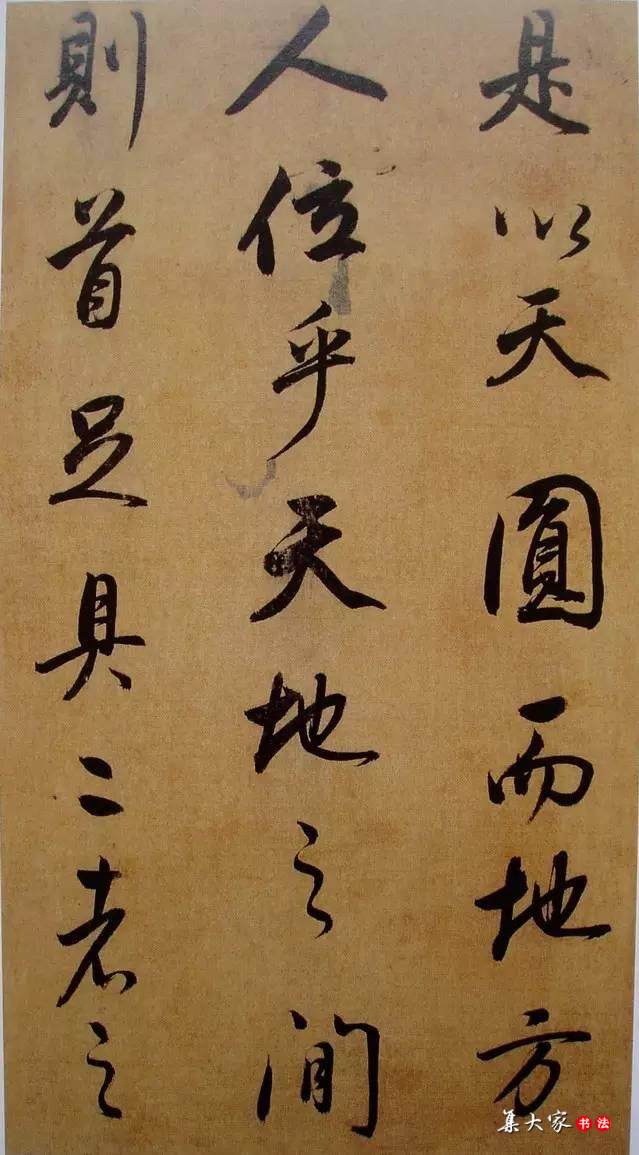 是以天圓而地方
人位乎天地之間
則首足具二者之
集大家书法